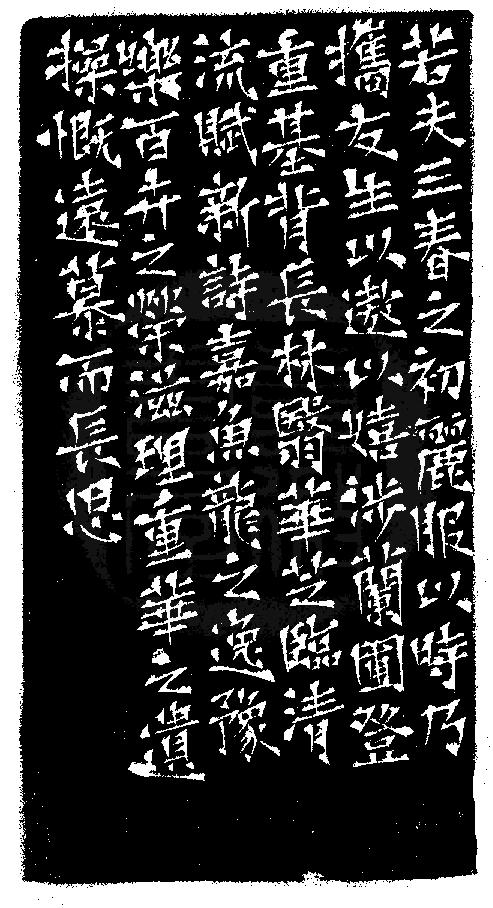 若夫三春之初麗服以時乃
攜友生以遨以嬉涉蘭圃登
重基背長林翳華芝臨清
流賦新詩嘉魚龍之逸豫
樂百卉之榮滋理重華之遺
操慨遠慕而長思